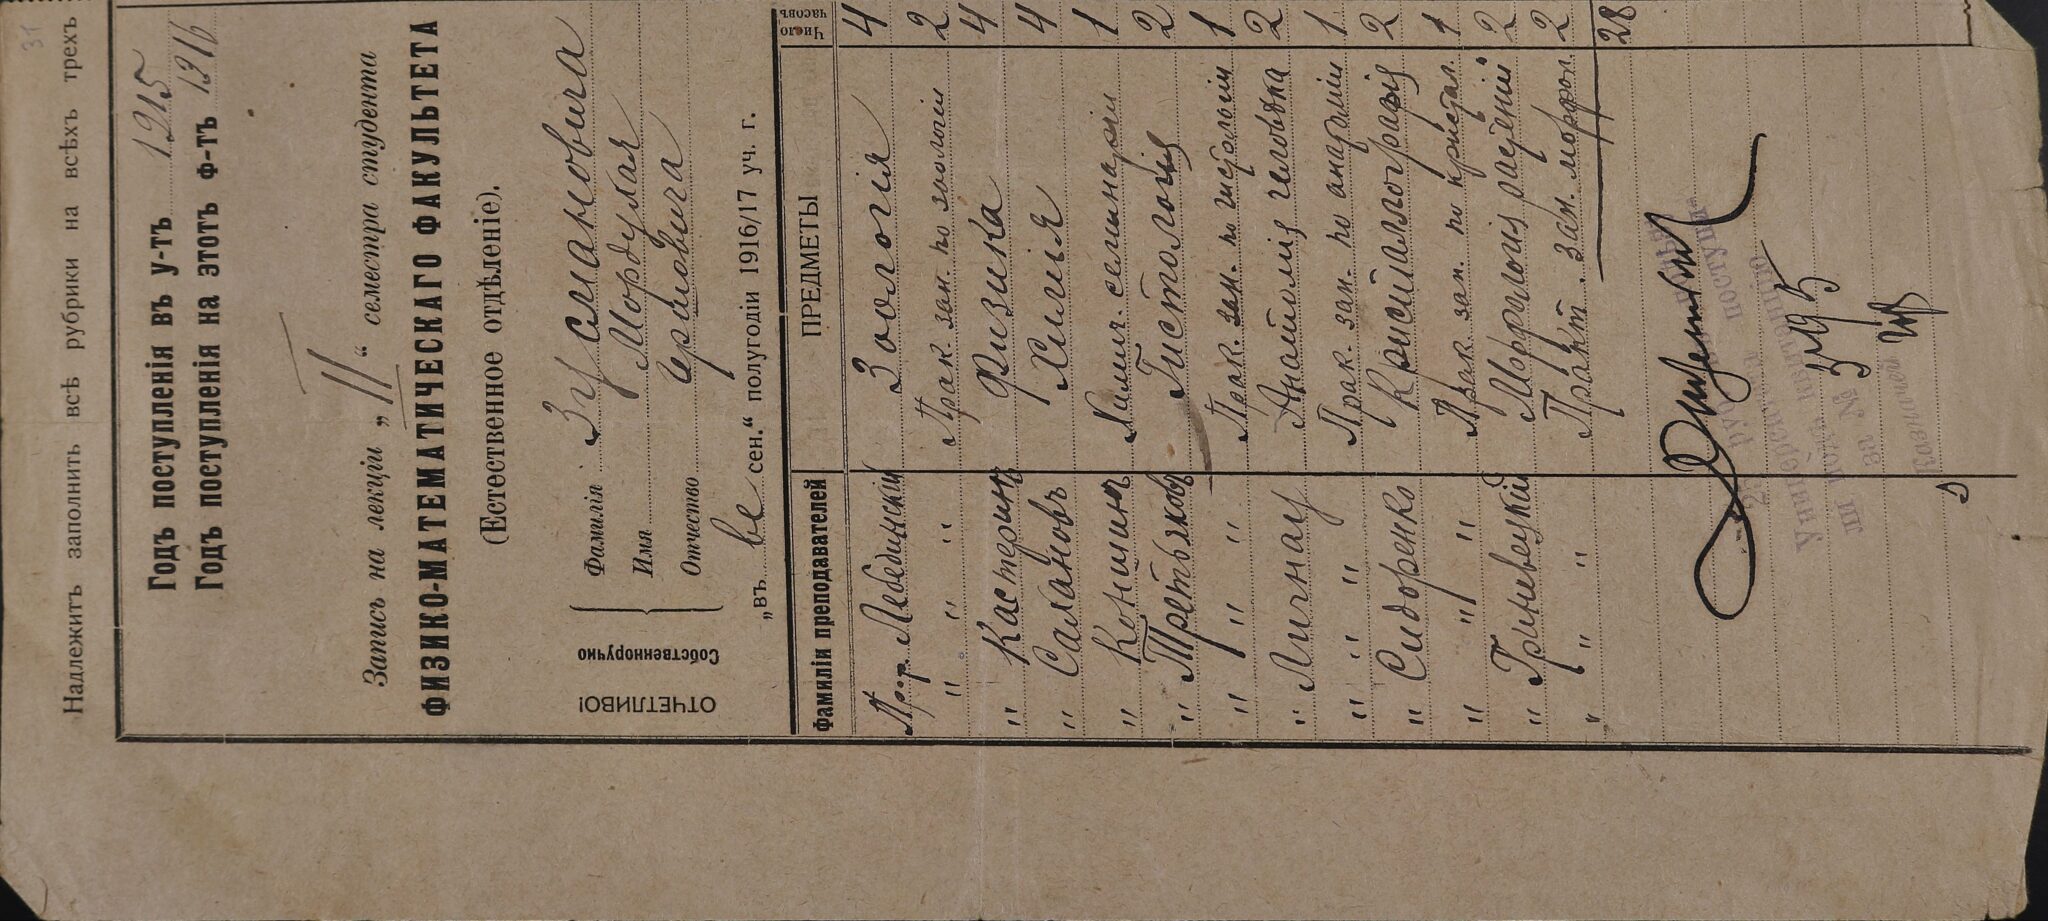 Надлежитъ заполнить всѣ рубрики на всѣхъ трехъ
31
Годъ поступленія въ у-тъ 1915
Годъ поступленія на этотъ ф-тъ 1916
Запись на лекціи „II“ семестра студента
ФИЗИКО-МАТЕМАТИЧЕСКАГО ФАКУЛЬТЕТА
(Естественное отдѣленіе).
ОТЧЕТЛИВО!
Собственноручно
Фамилія Зусмановича
Имя Мордухая
Отчество
„въ ве сен.“ полугодіи 1916/17 уч. г.
Фамиліи преподавателей ПРЕДМЕТЫ Число часовъ
Проф. Лебединскій Зоологія 4
" " " Прак. зан. по зоологіи 2
" Кастеринъ Физика 4
" Химія 4
" Коншинъ семинарій 1
" Третьяковъ Гистологія 2
" " " Прак. зан. по гистологіи 1
" Лигнау Анатомія человѣка 2
" " " Прак. зан. по анатоміи 1
" Сидоренко Кристаллографія 2
" " " Прак. зан. по кристал. 1
" Гриневецкій Морфологія растеній 2
" " " Практ. зан. морфол. 2
28
поступи
Университета
подъ квитанцію
за №
Казначей